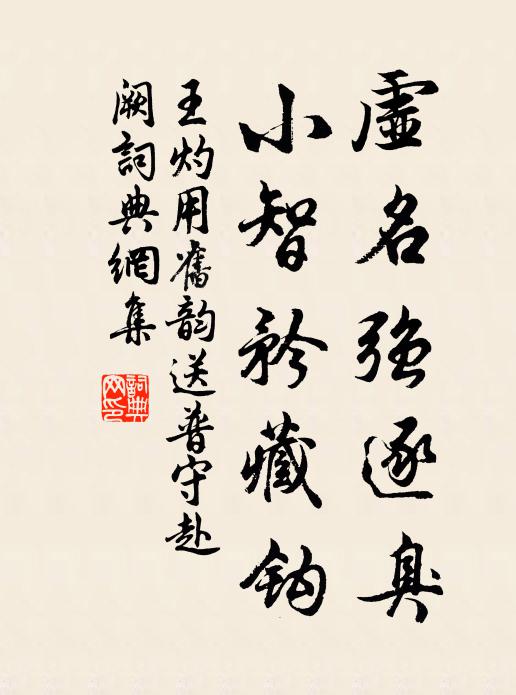 虛名強逐臭
小智矜藏鈎
王灼用舊韵送普守赴
闕詞典網集
詞典
网印